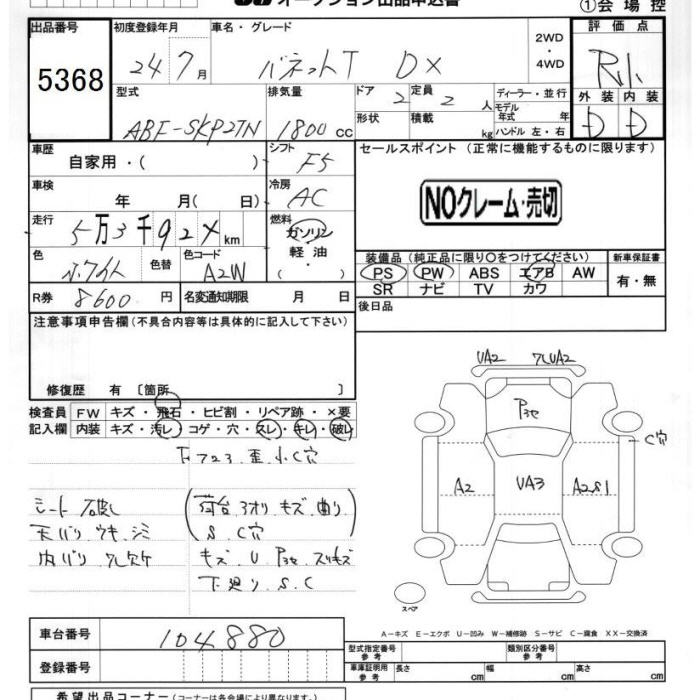 オークション出品申込書
①会場控
出品番号
5368
初度登録年月
24 7月
車名・グレード
バネットT DX
2WD
・
4WD
評価点
外装 内装
D D
型式
ABF-SKP2TN
排気量
1800 cc
ドア
2
定員
2 人
形状
積載 kg
ディーラー・並行
モデル年式 年
ハンドル 左・右
車歴
自家用・( )
シフト
F5
セールスポイント (正常に機能するものに限ります)
NOクレーム・売切
車検
年 月( 日)
冷房
AC
走行
5万3千92X km
燃料
ガソリン
・
軽油
・
( )
色
ホワイト
色替
色コード
A2W
装備品 (純正品に限り○をつけてください)
PS PW ABS エアB AW
SR ナビ TV カワ
新車保証書
有・無
R券
8600 円
名変通知期限 月 日
後日品
注意事項申告欄 (不具合内容等は具体的に記入して下さい)
修復歴 有 〔箇所 〕
検査員記入欄
FW キズ・飛石・ヒビ割・リペア跡・×要
内装 キズ・汚レ・コゲ・穴・スレ・キレ・破レ
シート破レ
天バリ ウキ、シミ
内バリ ワレ欠ケ
荷台、3オリ キズ、曲リ
S、C穴
キズ、U、P3セ、スリキズ
下廻り、S、C
UA2 ワレUA2
P3セ
C穴
A2
UA3
A2S1
スペア
A-キズ E-エクボ U-凹み W-補修跡 S-サビ C-腐食 XX-交換済
車台番号
104880
登録番号
型式指定番号
参考
類別区分番号
参考
車庫証明用
参考
長さ cm
幅 cm
高さ cm
希望出品コーナー (コーナーは各会場により異なります)